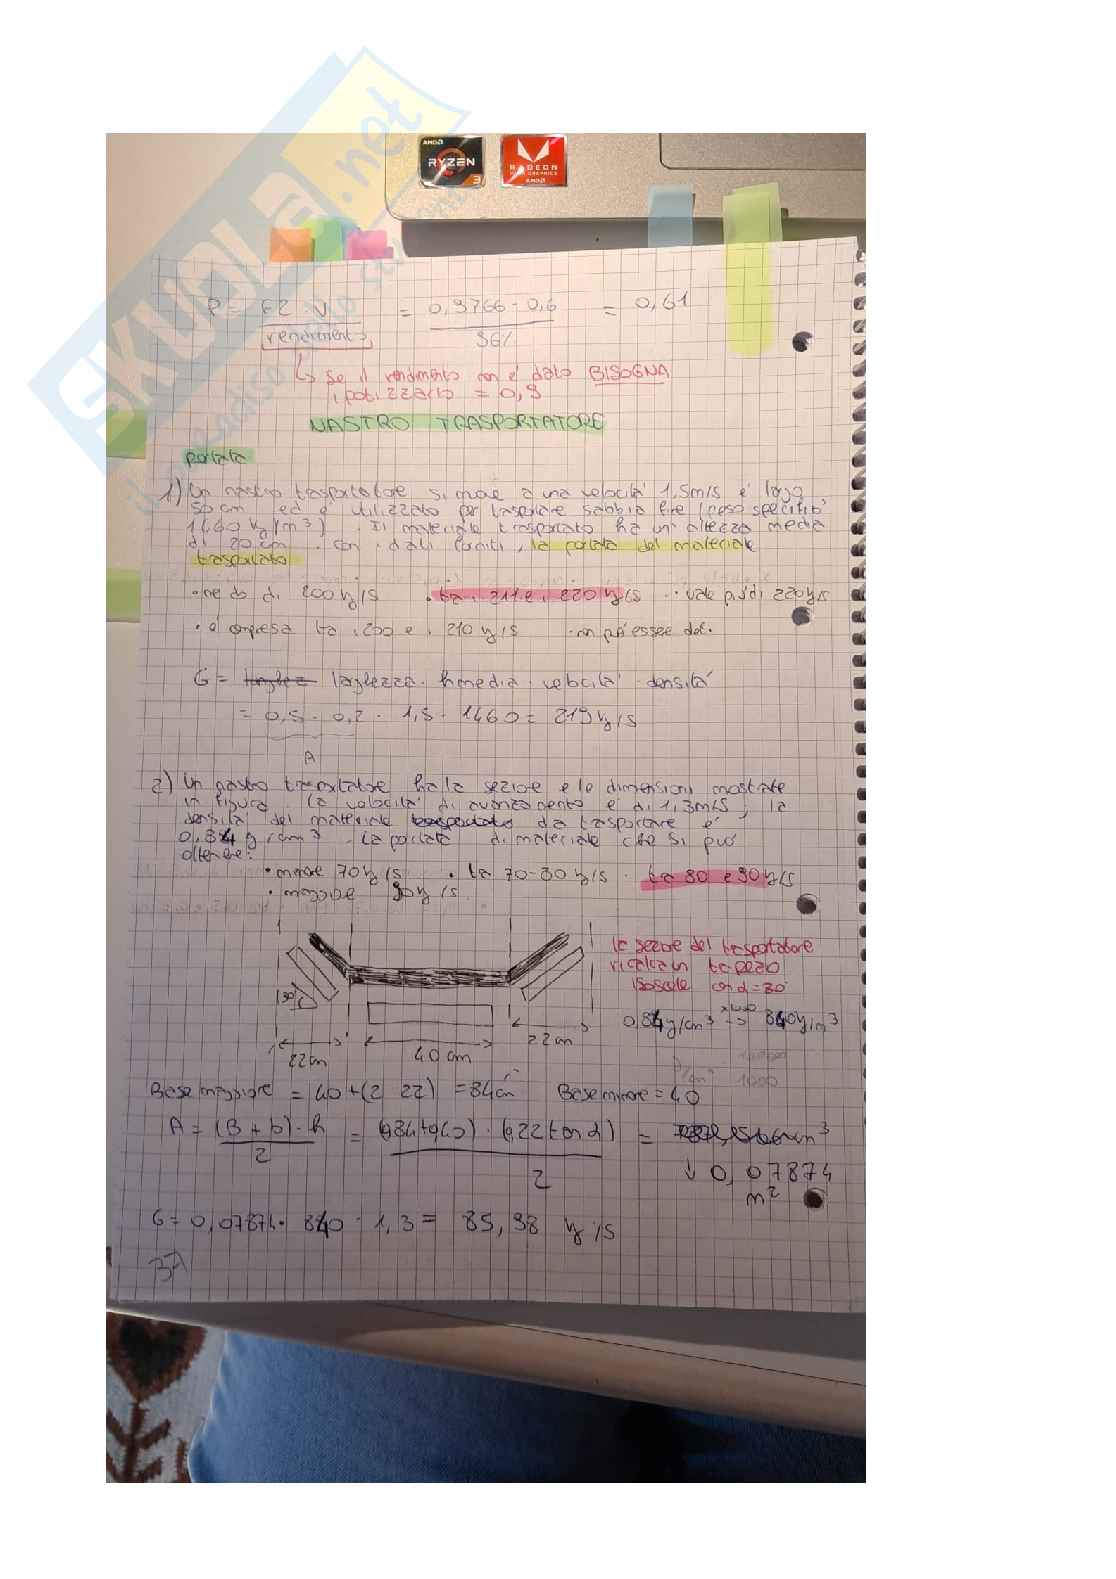 SKUOLA.net
AMD
RYZEN
3
RADEON
GRAPHICS
AMD
P = F2 · V = 0,9766 · 0,6 = 0,61
rendimento
↳ se il rendimento non è dato BISOGNA
ipotizzarlo = 0,9
NASTRO TRASPORTATORE
portata
1) Un nastro trasportatore si move a una velocità 1,5m/s è largo
50 cm ed è utilizzato per trasportare sabbia (peso specifico
1460 kg/m³). Il materiale trasportato ha un'altezza media
di 20 cm. con i dati forniti, la portata del materiale
trasportato
· di 200 kg/s · tra i 211 e i 220 kg/s · vale più di 220 kg/s
· è compresa tra i 200 e i 210 kg/s · non può essere det.
G = larghezza · hmedia · velocità · densità
= 0,5 · 0,2 · 1,5 · 1460 = 219 kg/s
A
2) Un nastro trasportatore ha la sezione e le dimensioni mostrate
in figura. la velocità di avanzamento è di 1,3m/s, la
densità del materiale da trasportare è
0,84 g/cm³. La portata di materiale che si può
ottenere:
· minore 70 kg/s · tra 70-80 kg/s · tra 80 e 90 kg/s
· maggiore 90 kg/s
la sezione del trasportatore
ricalca un trapezio
isoscele con α = 30°
30°
0,84 g/cm³ → 840 kg/m³
22 cm
40 cm
22 cm
Base maggiore = 40 + (2 · 22) = 84 cm Base minore = 40
A = (B + b) · h / 2 = (0,84 + 0,40) · (0,22 tan α) / 2 =
↓ 0,07874
m²
G = 0,07874 · 840 · 1,3 = 85,98 kg/s